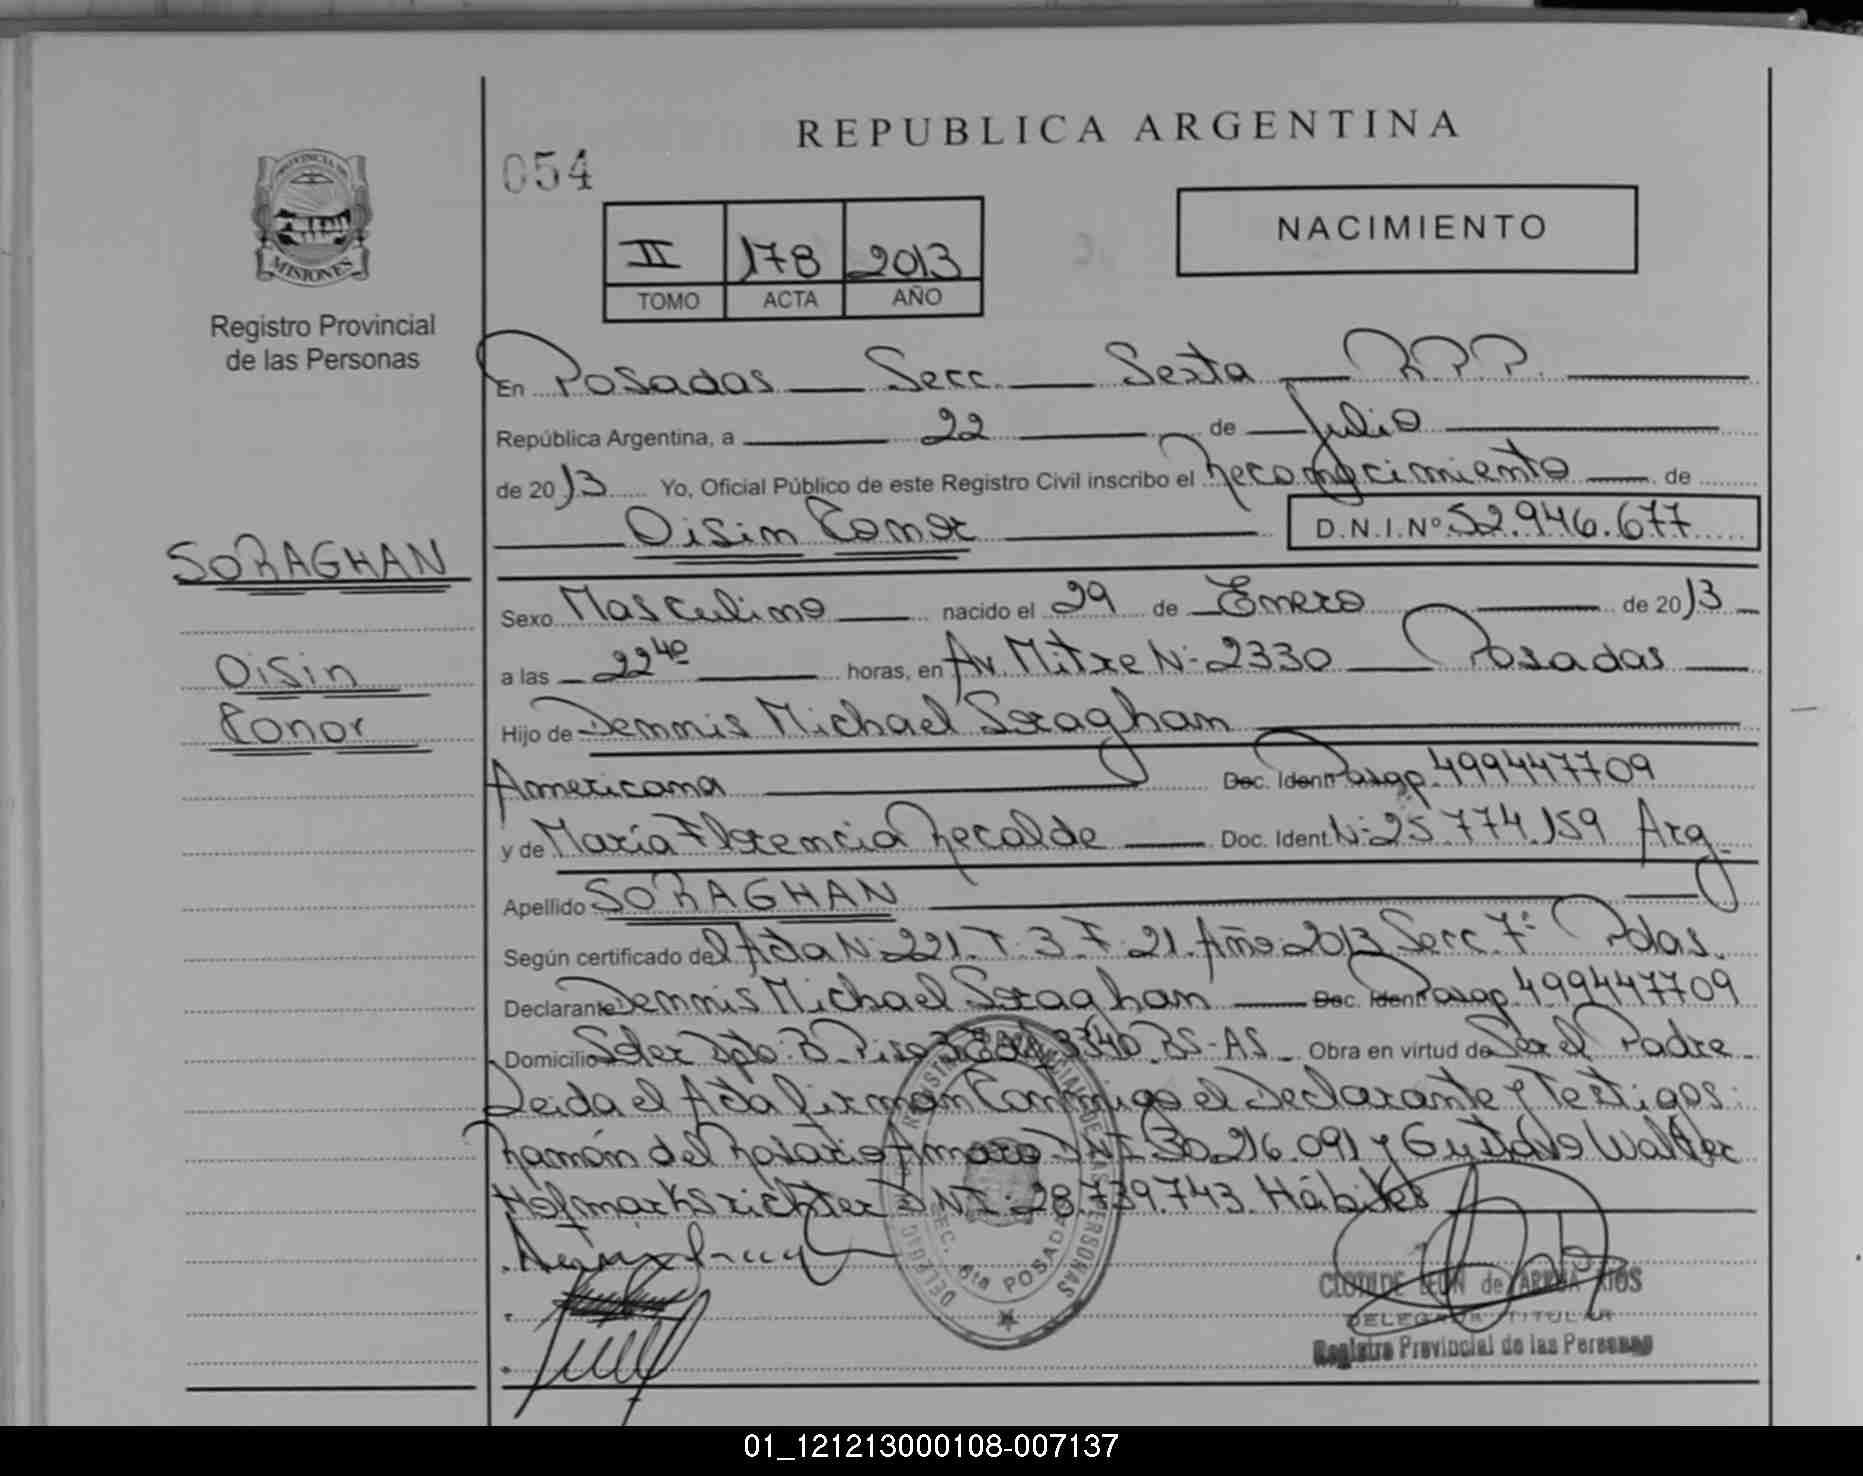 REPUBLICA ARGENTINA
054
NACIMIENTO
II 178 2013
TOMO ACTA AÑO
PROVINCIA DE
MISIONES
Registro Provincial
de las Personas
En Posadas Secc. Sexta R.P.P.
República Argentina, a 22 de Julio
de 2013 Yo, Oficial Público de este Registro Civil inscribo el Reconocimiento de
Oisin Conor D.N.I.Nº 52.946.677
SORAGHAN
Oisin
Conor
Sexo Masculino nacido el 29 de Enero de 2013
a las 22 40 horas, en Av. Mitre N: 2330 Posadas
Hijo de Dennis Michael Soraghan
Americana Doc. Ident. Pasap. 499447709
y de María Florencia Recalde Doc. Ident. N: 25.774.159 Arg.
Apellido SORAGHAN
Según certificado del Acta N: 221. T. 3 F. 21. Año: 2013 Secc. 7ª Pdas.
Declarante Dennis Michael Soraghan Doc. Ident. Pasap. 499447709
Domicilio Soler Dpto: B. Piso 3340 BS-AS Obra en virtud de Ser el Padre
Leida el Acta firman Conmigo el Declarante y Testigos:
Ramón del Rosario Amaro DNI 30.216.091 y Gustavo Walter
Hofmarksrichter DNI: 28.739.743. Hábiles
SEC. 6ta POSADAS
CLOTILDE LEON de ARRUA RIOS
DELEGADA TITULAR
Registro Provincial de las Personas
01_121213000108-007137